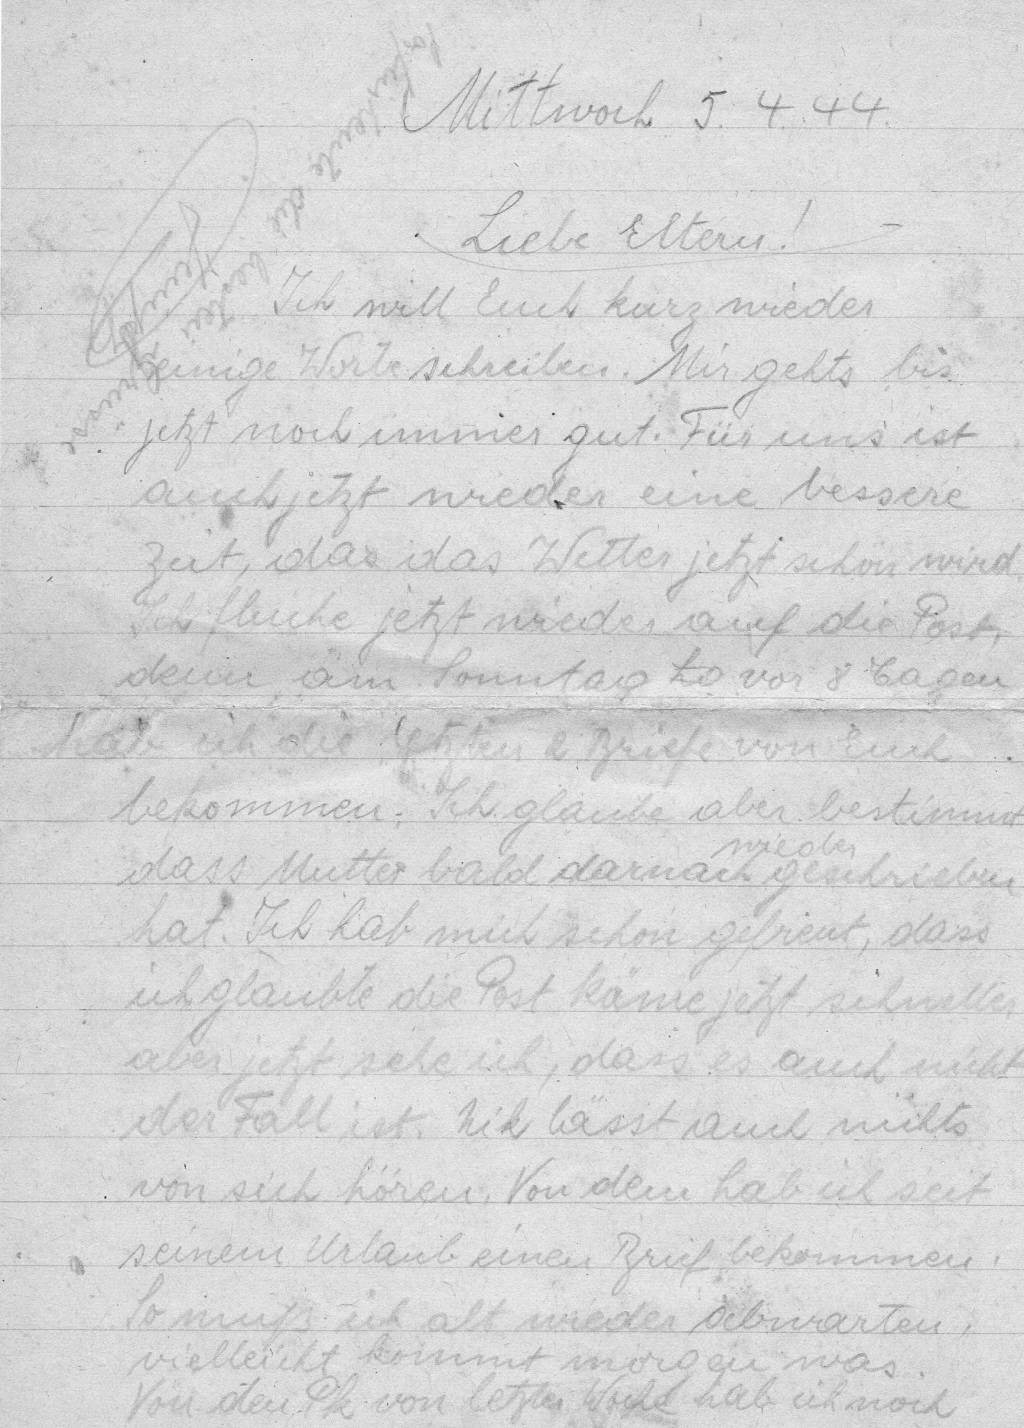 Mittwoch 5. 4. 44.
Liebe Eltern!
Ich will Euch kurz wieder
einige Worte schreiben. Mir gehts bis
jetzt noch immer gut. Für uns ist
auch jetzt wieder eine bessere
Zeit, das das Wetter jetzt schön wird.
Ich fluche jetzt wieder auf die Post,
denn am Sonntag vor 8 Tagen
hab ich die letzten 2 Briefe von Euch
bekommen. Ich glaube aber bestimmt
wieder
dass Mutter bald darnach geschrieben
hat. Ich hab mich schon gefreut, dass
ich glaubte die Post käme jetzt schneller
aber jetzt sehe ich, dass es auch nicht
der Fall ist. Nik lässt auch nichts
von sich hören. Von dem hab ich seit
seinem Urlaub einen Brief bekommen.
So muß ich alt wieder abwarten,
vielleicht kommt morgen was.
Von den Pk von letzter Woche hab ich noch
heute die
besten
Grüsse